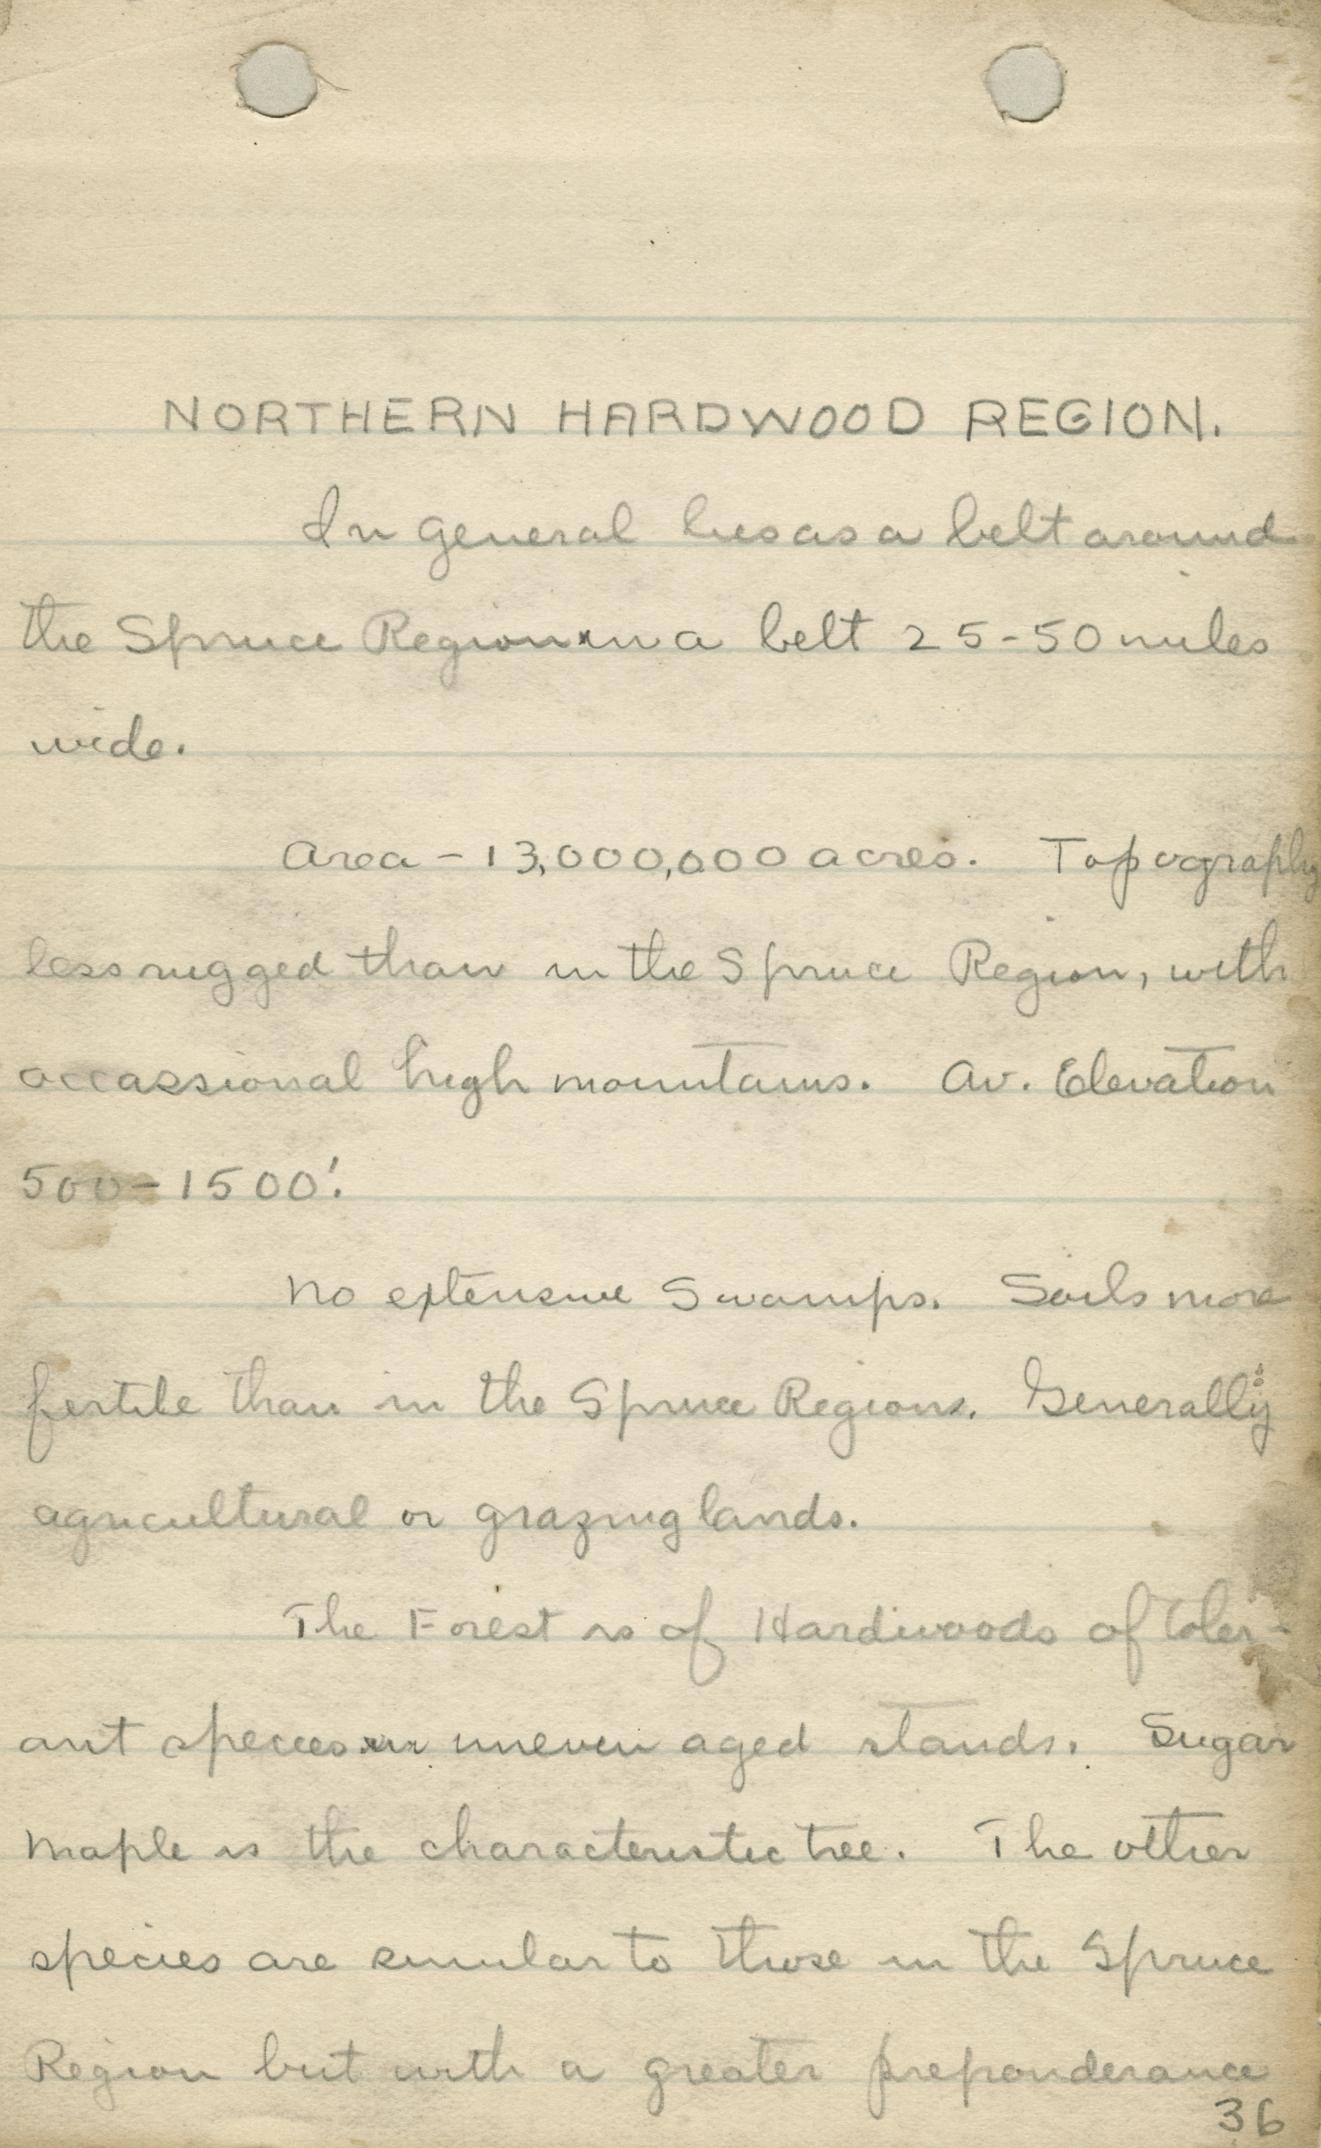 NORTHERN HARDWOOD REGION.
In general lies as a belt around
the Spruce Region in a belt 25-50 miles
wide.
Area - 13,000,000 acres. Topography
less rugged than in the Spruce Region, with
occassional high mountains. Av. Elevation
500-1500'.
No extensive Swamps. Soils more
fertile than in the Spruce Region. Generally
agricultural or grazing lands.
The Forest is of Hardwoods of toler-
ant species in uneven aged stands. Sugar
Maple is the characteristic tree. The other
species are similar to those in the Spruce
Region but with a greater preponderance
36